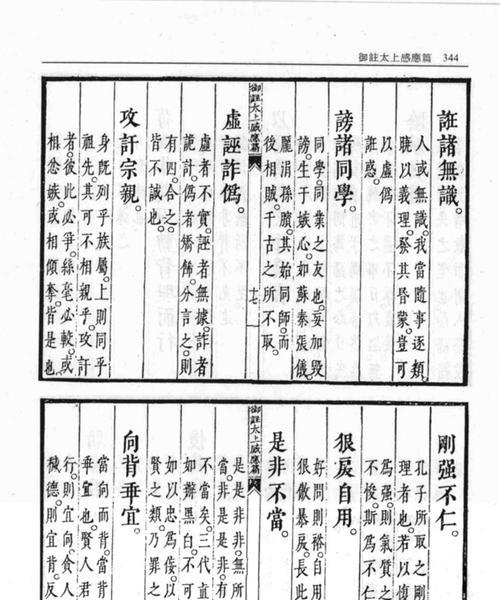 御註太上感應篇 344
誑諸無識。
人或無識。我當隨事逐類。
眺以義理。發其昏蒙。豈可
以虛偽
誑惑。
謗諸同學。
同學。同業之友也。妄加毀
謗。生于嫉心。如蘇秦張儀
龐涓孫臏。其始同師。而
後相賊。千古之所不取。
御註太上感應篇
十七
虛誣詐僞。
虛者不實。誣者無據。詐者
詭計。僞者矯飾。分言之。則
有四。合之
皆不誠也。
攻訐宗親。
身既列乎族屬。上則同乎
祖先。其可不相親乎。攻訐
者。彼此必爭。絲毫必較。或
相忿嫉。或相傾奪。皆是也
剛强不仁。
孔子所取之剛
理者也。若以
爲强。則氣質之
不悛。斯爲不仁
狠戾自用。
好問則裕。自用
很傲暴戾。長此
是非不當。
御註太上感應篇
是是非非。無所
當。非是是非。有
不當矣。三代直
如辦黑白。不可
如以忠爲佞。以
賢之類。乃罪之
向背乖宜。
當向而背。當背
乖宜也。賢人君
行。則宜向。食人
穢德。則宜背。反